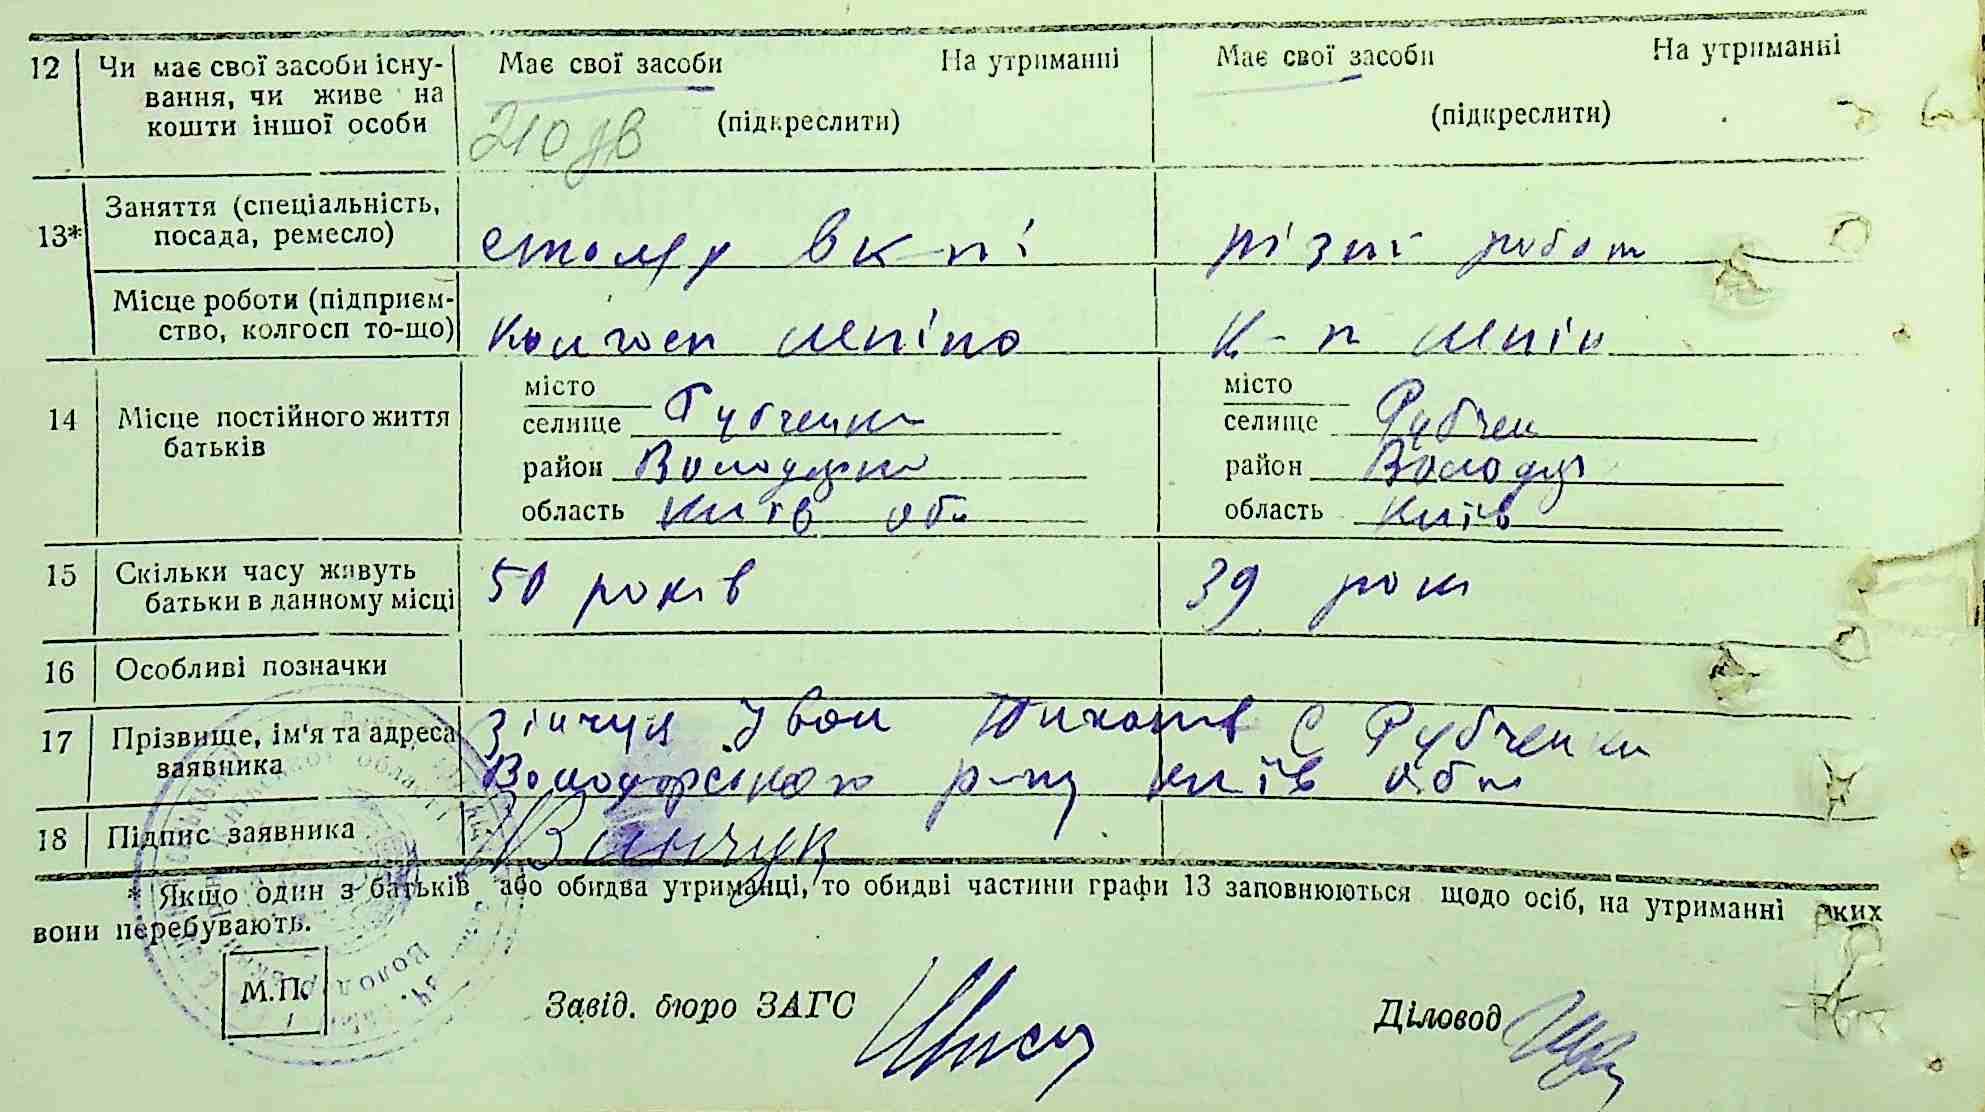 12 Чи має свої засоби існу- Має свої засоби На утриманні Має свої засоби На утриманні
вання, чи живе на
кошти іншої особи (підкреслити) (підкреслити)
210
Заняття (спеціальність,
13* посада, ремесло) столяр в к-пі різні робот
Місце роботи (підприєм-
ство, колгосп то-що) Колгосп к-п
місто місто
14 Місце постійного життя селище Рубченки селище Рубчен
батьків район Володарка район Володар
область Київ обл область Київ
15 Скільки часу живуть 50 років 39 рокі
батьки в данному місці
16 Особливі позначки
17 Прізвище, ім'я та адреса Зінчук Іван с Рубченки
заявника Володарського р-ну Київ обл
18 Підпис заявника Зинчук
* Якщо один з батьків або обидва утриманці, то обидві частини графи 13 заповнюються щодо осіб, на утриманні яких
вони перебувають.
М.П.
Завід. бюро ЗАГС Діловод